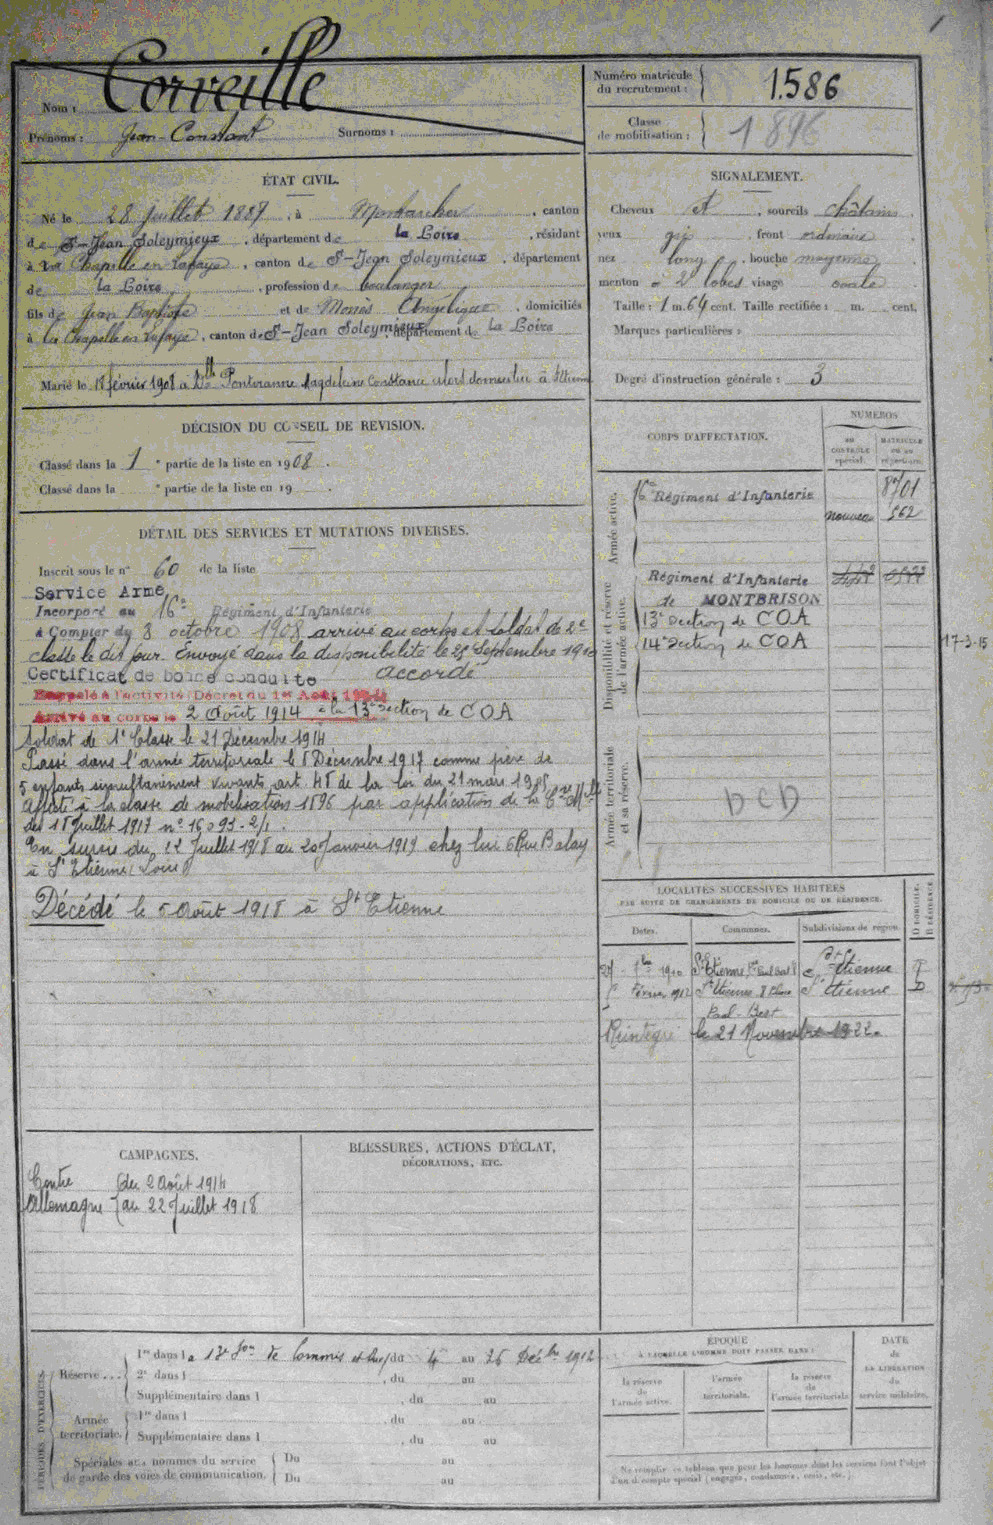 Nom : Corveille
Prénoms : Jean-Constant Surnoms :
Numéro matricule du recrutement : 1.586
Classe de mobilisation : 1896
ÉTAT CIVIL.
Né le 28 Juillet 1887, à Montarcher, canton
de St-Jean Soleymieux, département de la Loire, résidant
à La Chapelle en Lafaye, canton de St-Jean Soleymieux, département
de la Loire, profession de boulanger
fils de Jean Baptiste et de Angélique, domiciliés
à la Chapelle en Lafaye, canton de St-Jean Soleymieux, département de la Loire
Marié le 18 février 1908 à Dlle Magdeleine Constance
SIGNALEMENT.
Cheveux et, sourcils châtains
yeux gris, front ordinaire
nez long, bouche moyenne
menton à 2 lobes visage ovale
Taille : 1 m. 64 cent. Taille rectifiée : m. cent.
Marques particulières :
Degré d'instruction générale : 3
DÉCISION DU CONSEIL DE REVISION.
Classé dans la 1 e partie de la liste en 1908.
Classé dans la e partie de la liste en 19 .
DÉTAIL DES SERVICES ET MUTATIONS DIVERSES.
Inscrit sous le n° 60 de la liste
Service Armé
Incorporé au 16e Régiment d'Infanterie
à Compter du 8 octobre 1908 arrivé au corps et soldat de 2e
classe le dit jour. Envoyé dans la disponibilité le 25 Septembre 1910
Certificat de bonne conduite accordé
Rappelé à l'activité (Décret du 1er Août 1914)
Arrivé au corps le 2 Août 1914 à la 13e Section de COA
Soldat de 1e Classe le 21 Décembre 1914
Passé dans l'armée territoriale le 8 Décembre 1917 comme père de
5 enfants simultanément vivants art 48 de la loi du 21 mars 1905
Affecté à la classe de mobilisation 1896 par application de la
du 18 Juillet 1917 n° 16093-2/1.
En sursis du 22 Juillet 1918 au 20 Janvier 1919 chez lui 6 Rue Balay
à St Etienne (Loire)
Décédé le 5 Août 1918 à St Etienne
CORPS D'AFFECTATION.
NUMÉROS
AU CONTRÔLE spécial.
MATRICULE OU AU répertoire.
Armée active.
16e Régiment d'Infanterie 8701
nouveau 562
Disponibilité et réserve de l'armée active.
Régiment d'Infanterie
de MONTBRISON
13e Section de COA
14e Section de COA 17-3-15
Armée territoriale et sa réserve.
DCD
LOCALITÉS SUCCESSIVES HABITÉES
PAR SUITE DE CHANGEMENTS DE DOMICILE OU DE RÉSIDENCE.
Dates. Communes. Subdivisions de région. D DOMICILE. R RÉSIDENCE.
27 7bre 1910 St Etienne, Paul Bert 8 St Etienne
Février 1912 St Etienne 8 Place St Etienne D
Paul-Bert
Réintégré le 21 Novembre 1922.
CAMPAGNES.
Contre Allemagne du 2 Août 1914
au 22 Juillet 1918
BLESSURES, ACTIONS D'ÉCLAT,
DÉCORATIONS, ETC.
PÉRIODES D'EXERCICES.
Réserve... 1re dans la 13e Son de Commis et du 4 au 26 Décbre 1912
2e dans l , du au
Supplémentaire dans l , du au
Armée territoriale. 1re dans l , du au
Supplémentaire dans l , du au
Spéciales aux hommes du service de garde des voies de communication. Du au
Du au
ÉPOQUE
À LAQUELLE L'HOMME DOIT PASSER DANS :
la réserve de l'armée active.
l'armée territoriale.
la réserve de l'armée territoriale.
DATE de LA LIBÉRATION du service militaire.
Ne remplir ce tableau que pour les hommes dont les services font l'objet
d'un décompte spécial (engagés, condamnés, omis, etc.)